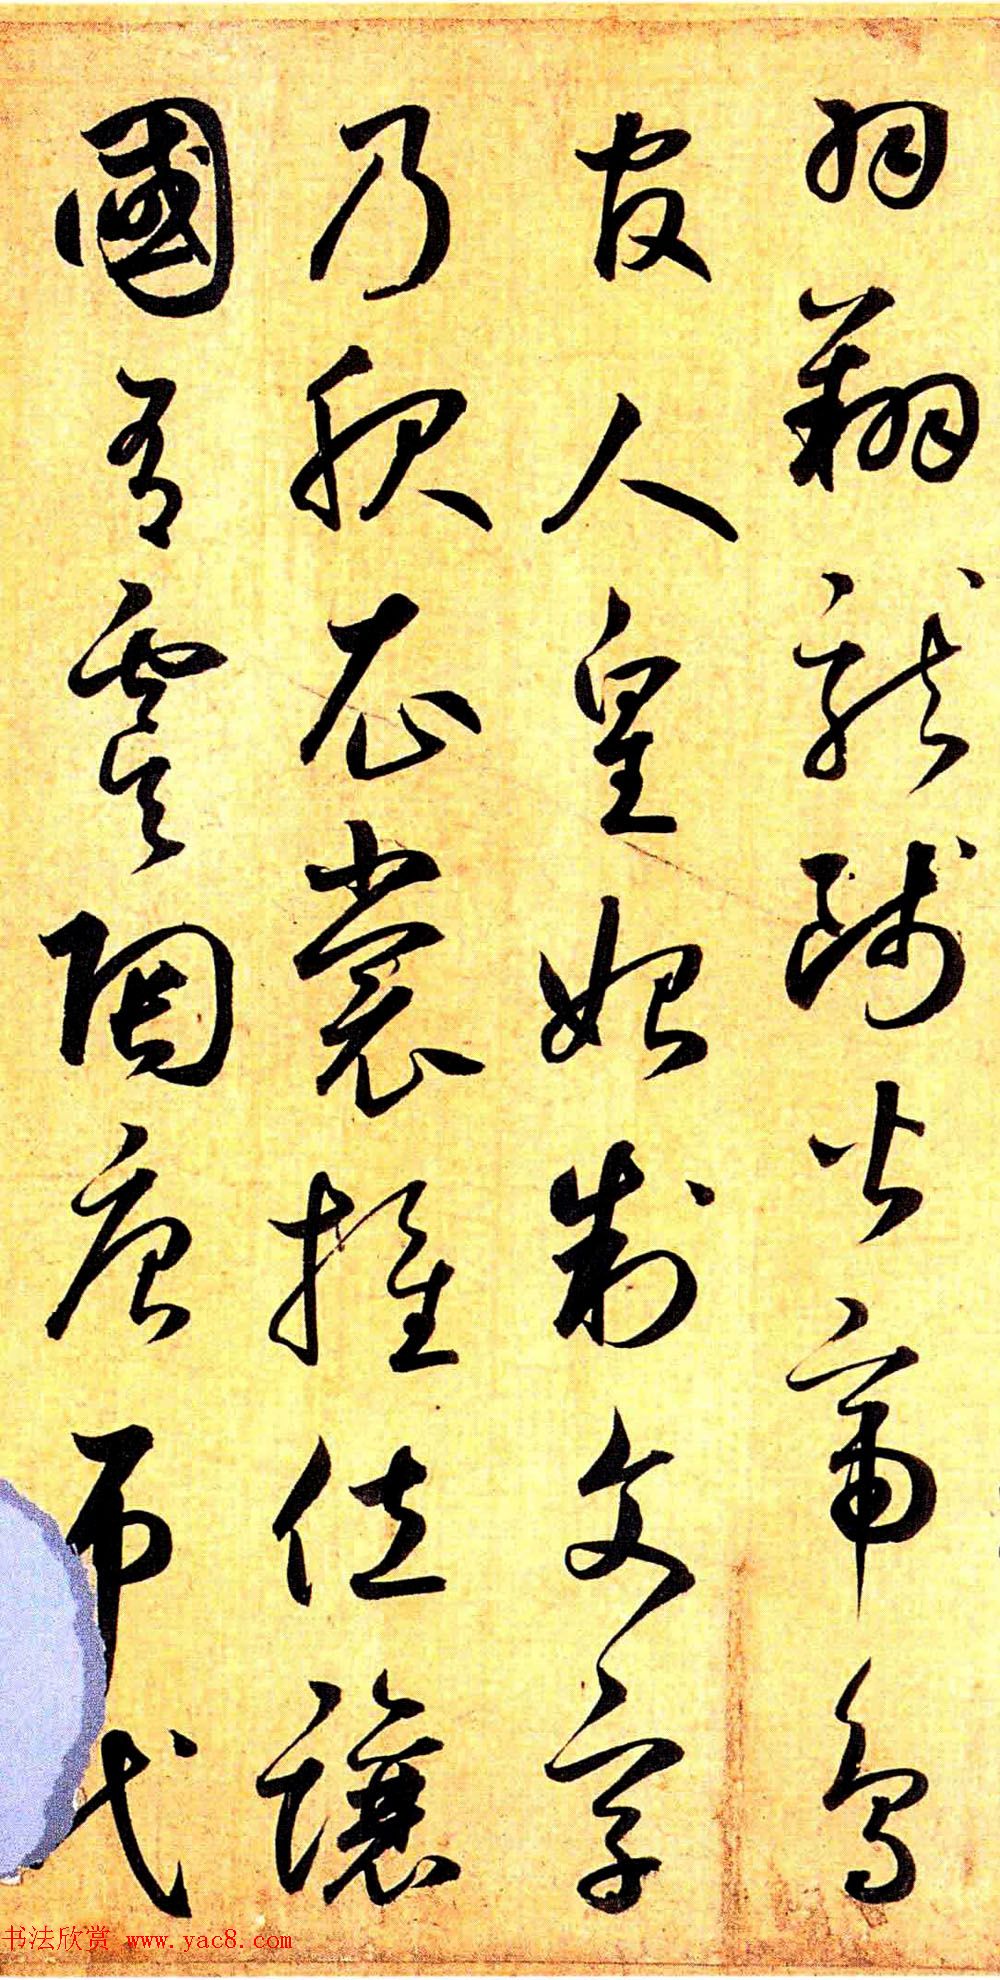 羽翔龍師火帝鳥
官人皇始制文字
乃服衣裳推位讓
國有虞陶唐吊民
书法欣赏 www.yac8.com